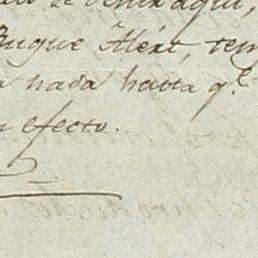 se venir aqui,
Buque Alert, tem
nada hasta q.e
efecto.